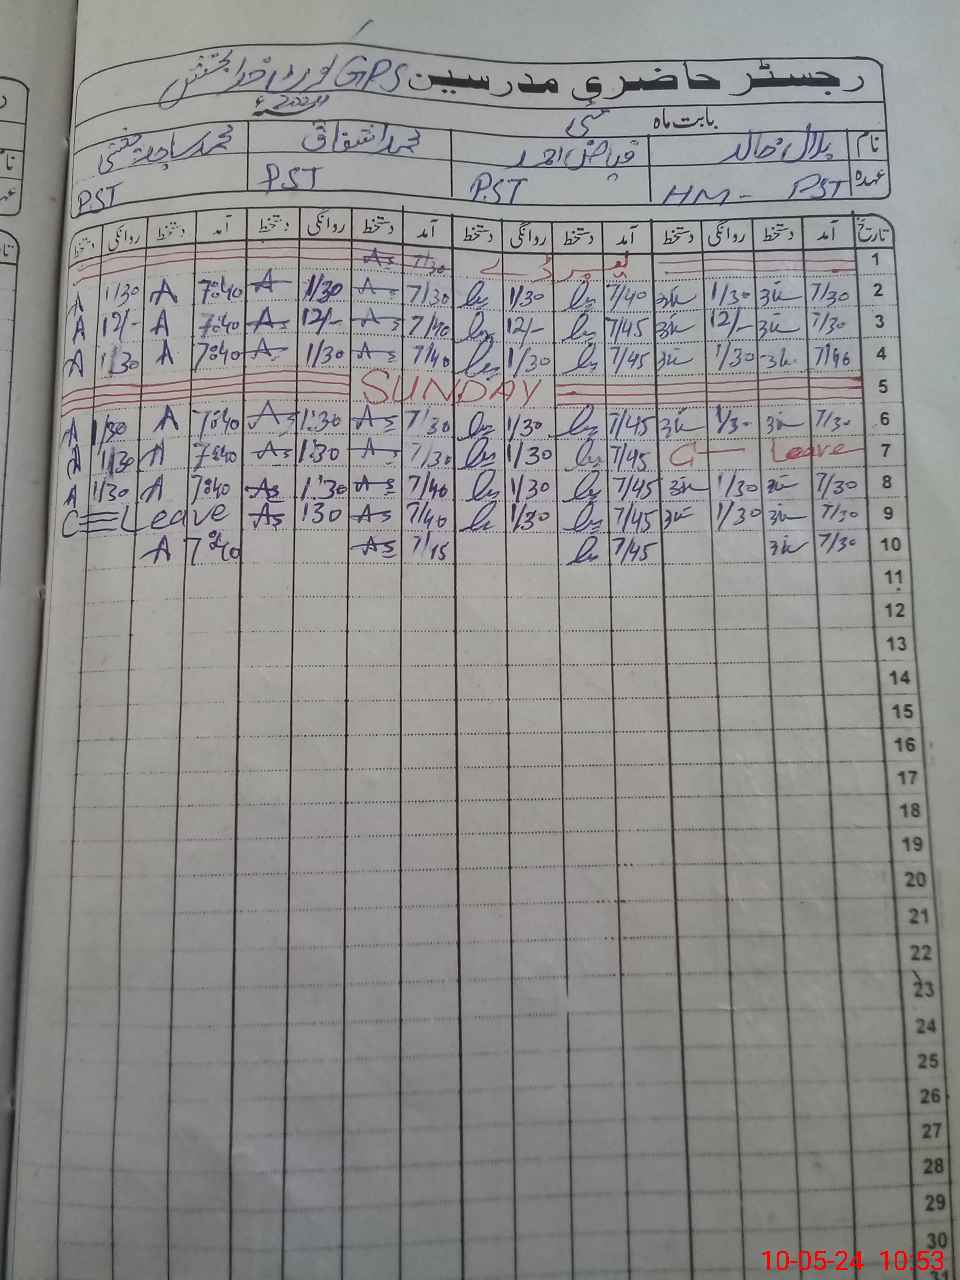 رجسٹر حاضری مدرسین GPS
بابت ماہ مئی
نام بلال خالد فیاض احمد محمد اشفاق محمد ساجد
عہدہ HM - PST PST PST PST
تاریخ آمد دستخط روانگی دستخط آمد دستخط روانگی دستخط آمد دستخط روانگی دستخط آمد دستخط روانگی دستخط
1 7/30 As
2 7/30 1/30 7/40 1/30 7/30 A 1/30 A 7:40 A 1/30 A
3 7/30 12/- 7/45 12/- 7/40 As 12/- As 7:40 A 12/- A
4 7/40 1/30 7/45 1/30 7/40 As 1/30 A 7:40 A 1/30 A
5 SUNDAY
6 7/30 1/30 7/45 1/30 7/30 As 1:30 As 7:40 A 1/30 A
7 C Leave 7/45 1/30 7/30 As 1:30 As 7:40 A 1/30 A
8 7/30 1/30 7/45 1/30 7/40 As 1:30 As 7:40 A 1/30 A
9 7/30 1/30 7/45 1/30 7/40 As 130 As C Leave
10 7/30 7/45 7/15 As 7:40 A
11
12
13
14
15
16
17
18
19
20
21
22
23
24
25
26
27
28
29
30
10-05-24 10:53